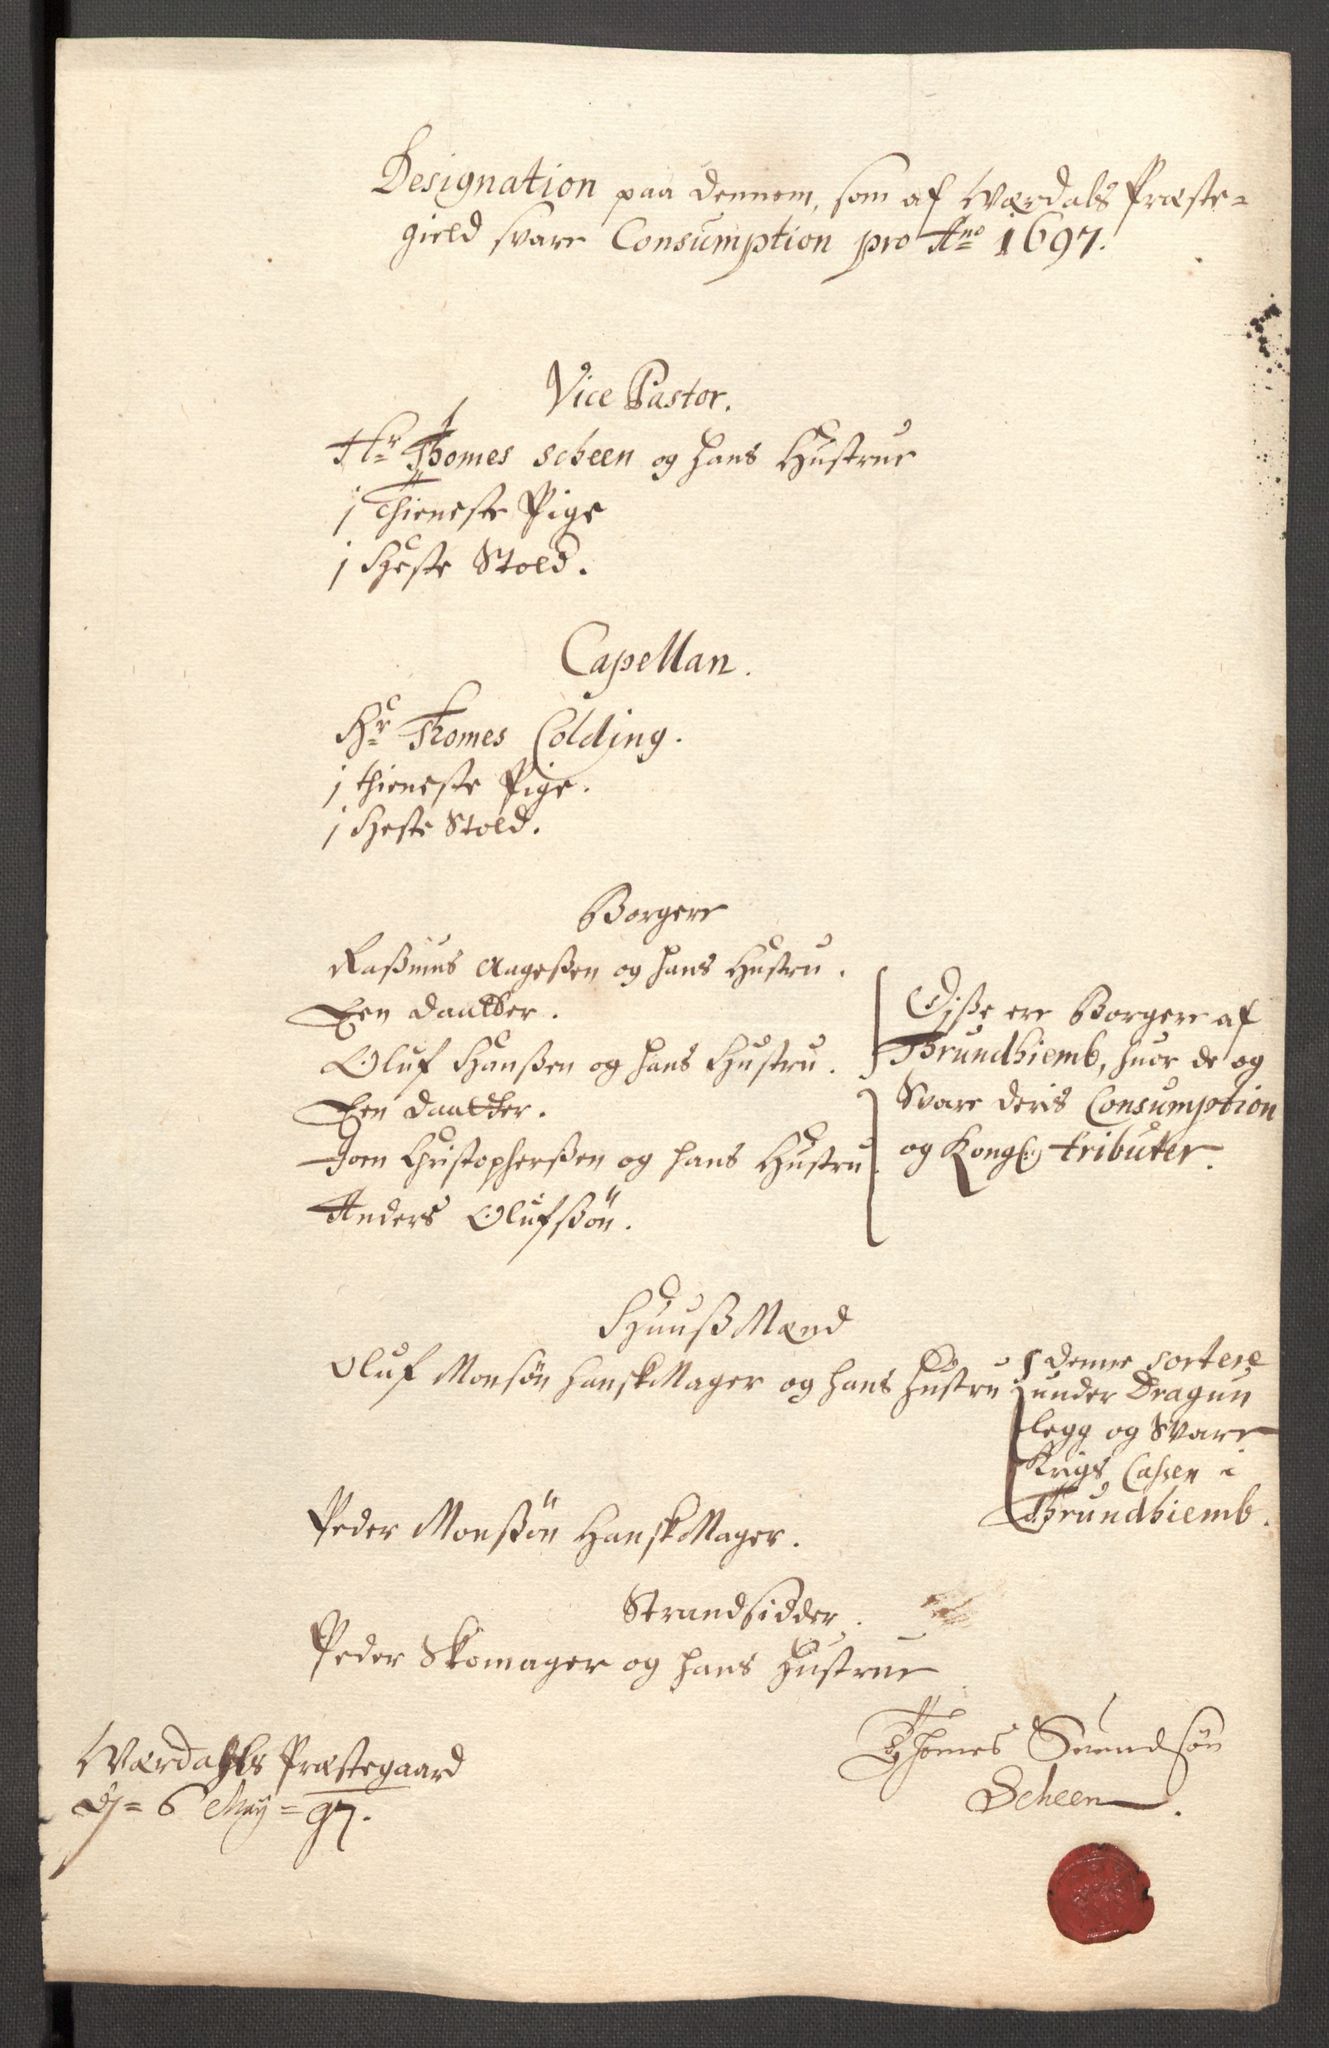 Designation paa dennem, som af Werdals Præste-
gield svare Consumption pro Ano 1697.
Vice Pastor.
Hr Thomes Scheen og hans Hustrue
j Thieneste Pige
j Heste Stold.
Capellan.
Hr Thomes Colding.
j thieneste Pige.
j Heste Stold.
Borgere
Raßmus Aageßen og hans Hustru.
Een daatter.
Oluf Hanßen og hans Hustru.
Een daatter.
Joen Christopherßen og hans Hustru.
Anders Olufßön.
Diße ere Borgere af
Thrundhiemb, huor de og
Svare deris Consumption
og Kongl. tributer.
Huuß Mænd
Oluf Monsön HanskMager og hans Hustru
denne sortere
under Dragun
legg og Svare
Krigs Caßen i
Thrundhiemb.
Peder Monßön HanskMager.
Strandsidder.
Peder Skomager og hans Hustrue
Werdahls Præstegaard
D = 6 May = 97.
Thomes Suendsön
Scheen.